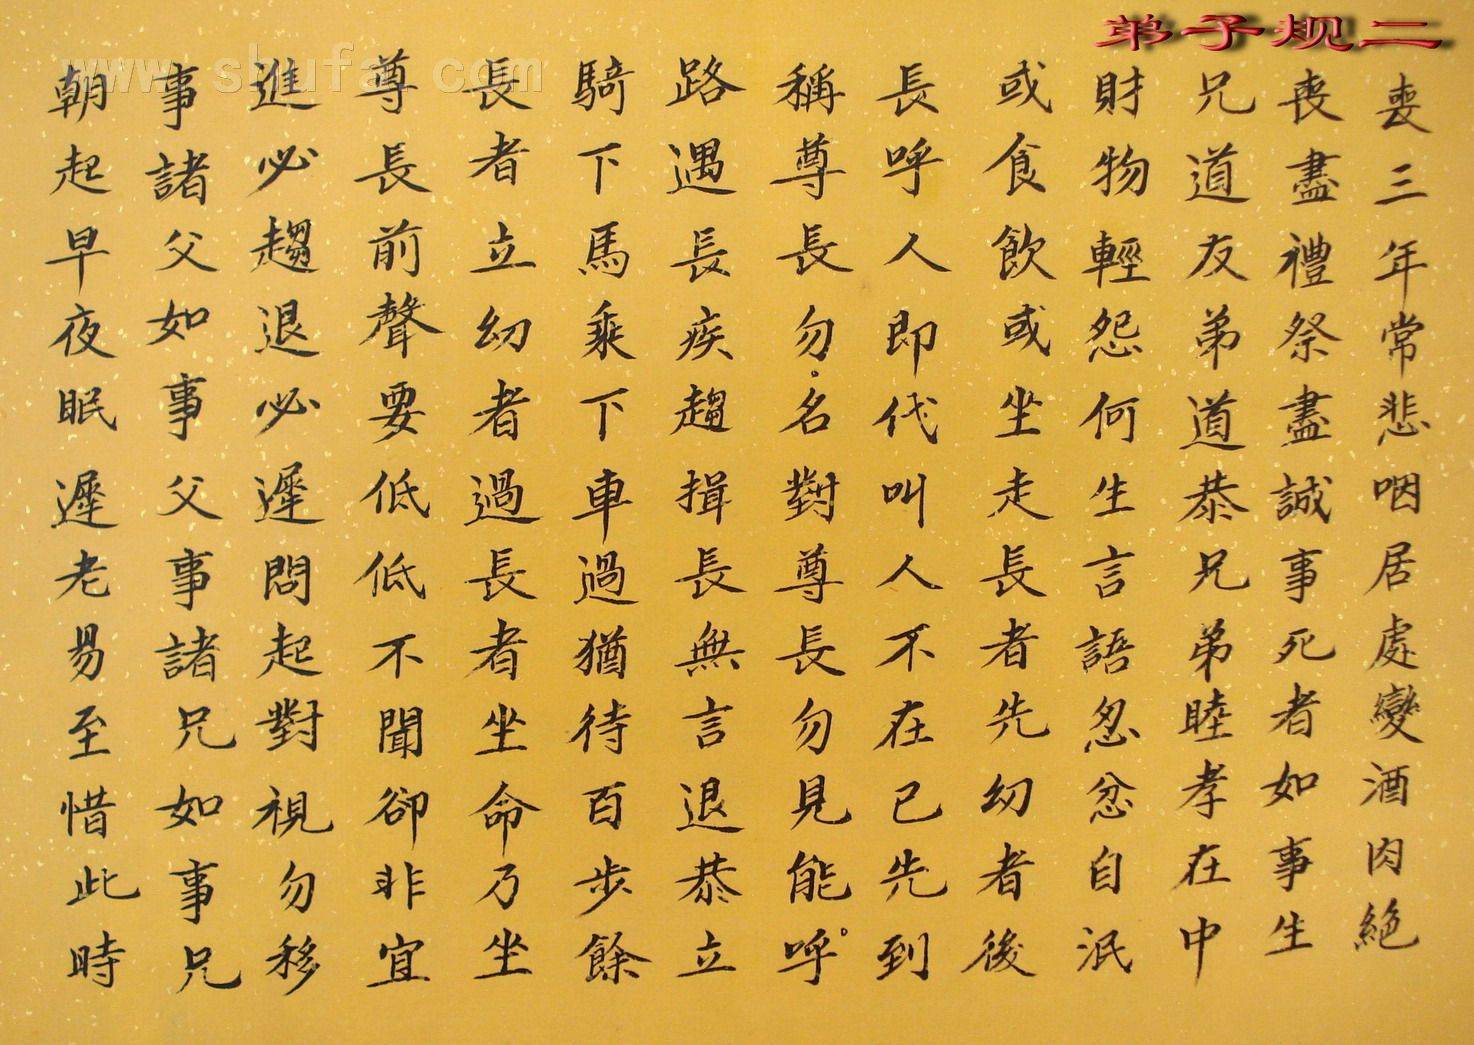 弟子规二
www.shufa.com
喪三年常悲咽居處變酒肉絕
喪盡禮祭盡誠事死者如事生
兄道友弟道恭兄弟睦孝在中
財物輕怨何生言語忍忿自泯
或食飲或坐走長者先幼者後
長呼人即代叫人不在已先到
稱尊長勿。名對尊長勿見能呼。
路遇長疾趨揖長無言退恭立
騎下馬乘下車過猶待百步餘
長者立幼者過長者坐命乃坐
尊長前聲要低低不聞卻非宜
進必趨退必遲問起對視勿移
事諸父如事父事諸兄如事兄
朝起早夜眠遲老易至惜此時